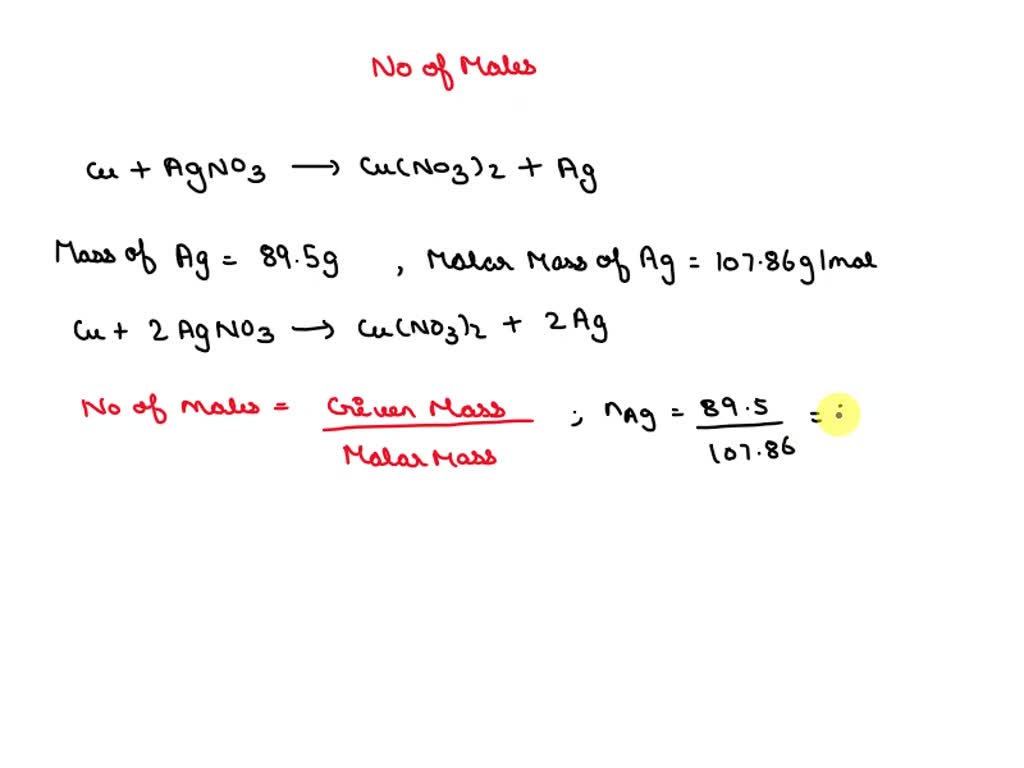 No of Moles
Cu + AgNO3 → Cu(NO3)2 + Ag
Mass of Ag = 89.5g , Molar Mass of Ag = 107.86g/mol
Cu + 2AgNO3 → Cu(NO3)2 + 2Ag
No of moles = Given Mass / Molar Mass ; nAg = 89.5 / 107.86 =